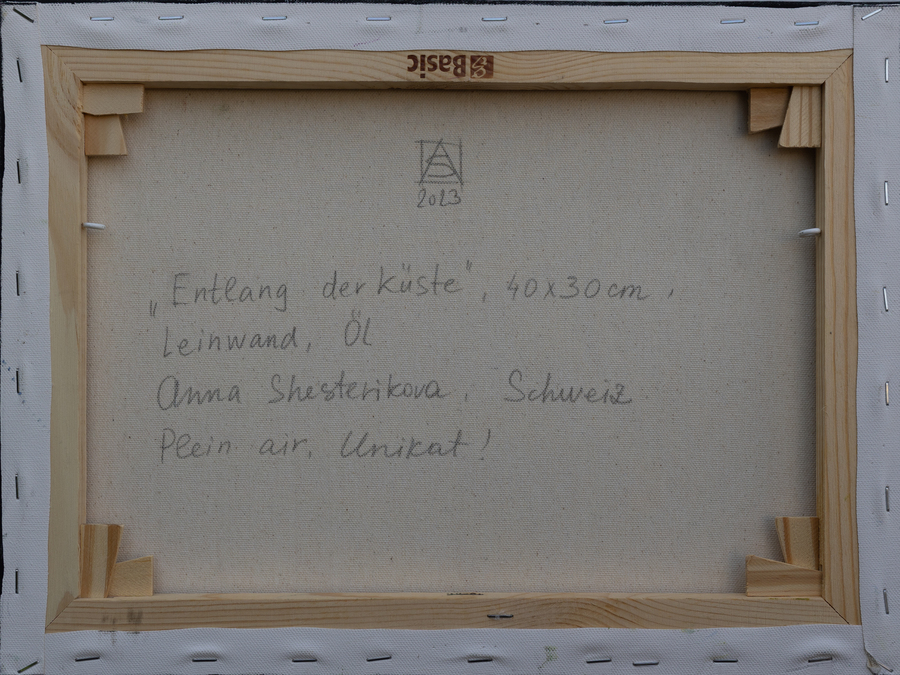 Basic
AS
2023
„Entlang der Küste", 40x30cm,
Leinwand, Öl
Anna Shesterikova, Schweiz
Plein air, Unikat!